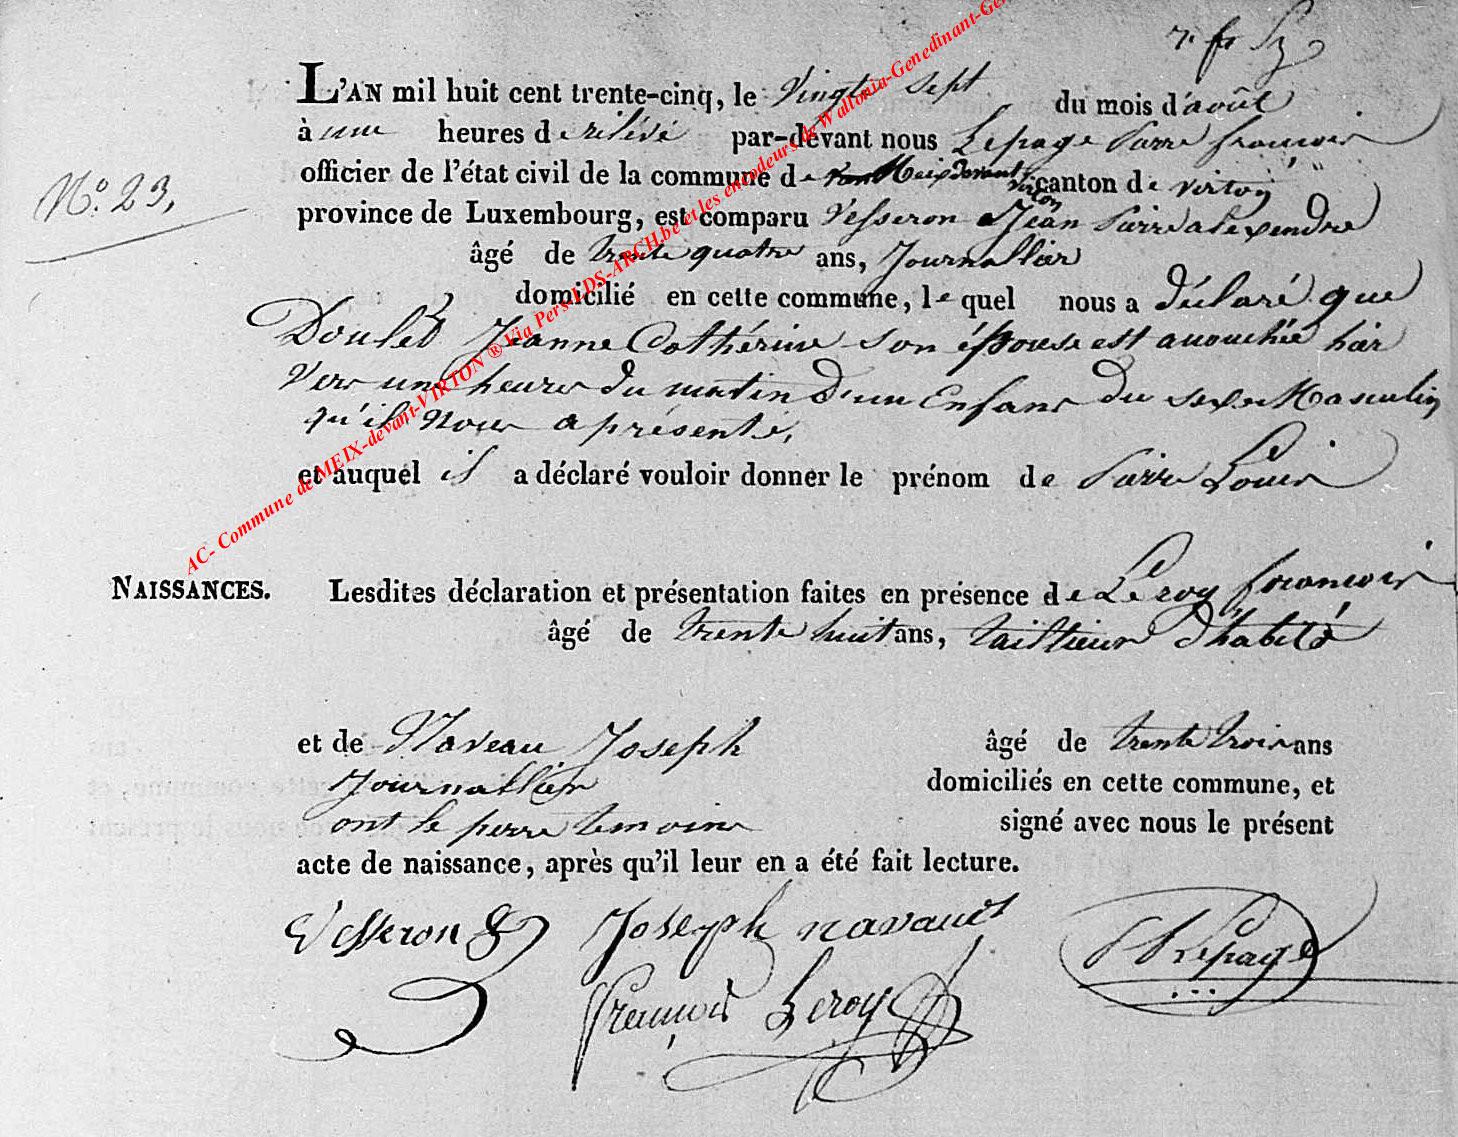 L'AN mil huit cent trente-cinq, le Vingt sept du mois d'août
à une heures de relévé par-devant nous Lepage Pierre francois
officier de l'état civil de la commune de Meix devant virton canton de virton
N.º 23,
province de Luxembourg, est comparu Vesseron Jean Pierre alexendre
âgé de trente quatre ans, Journallier
domicilié en cette commune, le quel nous a déclaré que
Doulet Jeanne Cathérine son épouse est accouchée hier
Vers une heures du matin d'un Enfant du sexe Masculin
qu'il nous a présenté,
et auquel il a déclaré vouloir donner le prénom de Pierre Louis
NAISSANCES. Lesdites déclaration et présentation faites en présence de Leroy francois
âgé de trente huit ans, taillieur d'habits
et de Naveau Joseph âgé de trente trois ans
Journallier domiciliés en cette commune, et
ont le perre temoins signé avec nous le présent
acte de naissance, après qu'il leur en a été fait lecture.
Vesseron Joseph navaux PF Lepage
François Leroy
AC- Commune de MEIX-devant-VIRTON ® Via Pers-LDS-ARCH.be et les encodeurs de Wallonia-Genedinant-Ge